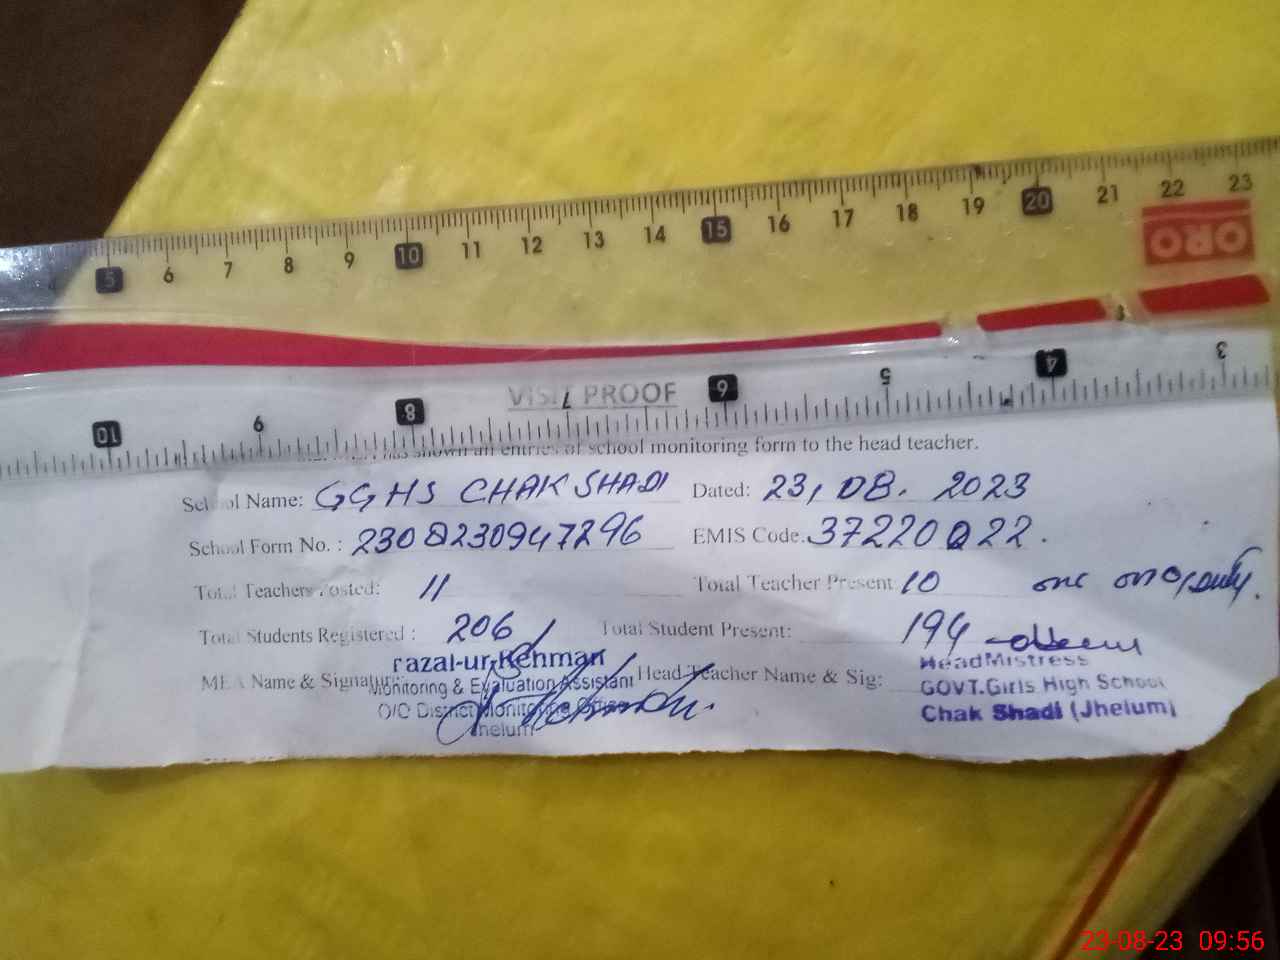 5 6 7 8 9 10 11 12 13 14 15 16 17 18 19 20 21 22 23
ORO
10 9 8 6 5 4 3
VISIT PROOF
has shown all entries of school monitoring form to the head teacher.
School Name: GGHS CHAK SHADI Dated: 23, 08. 2023
School Form No. : 2308230947296 EMIS Code. 37220022.
Total Teachers Posted: 11 Total Teacher Present 10 one on O/duty.
Total Students Registered : 206 Total Student Present: 194
MEA Name & Signature: Head Teacher Name & Sig:
Fazal-ur-Rehman
Monitoring & Evaluation Assistant
O/O District Monitoring Office
Jhelum
HeadMistress
GOVT.Girls High School
Chak Shadi (Jhelum)
23-08-23 09:56